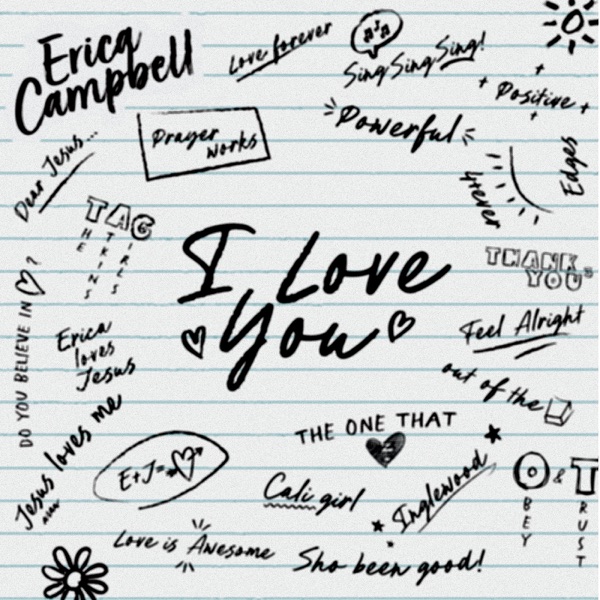 Erica
Campbell
Love forever
Sing Sing Sing!
Positive
Powerful
Prayer
works
Dear Jesus...
4ever
Edges
TAG
HE
TKINS
IRLS
I Love
You
THANK
YOU
DO YOU BELIEVE IN ♡?
Erica
loves
Jesus
Feel Alright
out of the
Jesus loves me
THE ONE THAT
E+J=♡
Cali girl
Inglewood
O & T
BEY
RUST
Love is Awesome
Sho been good!